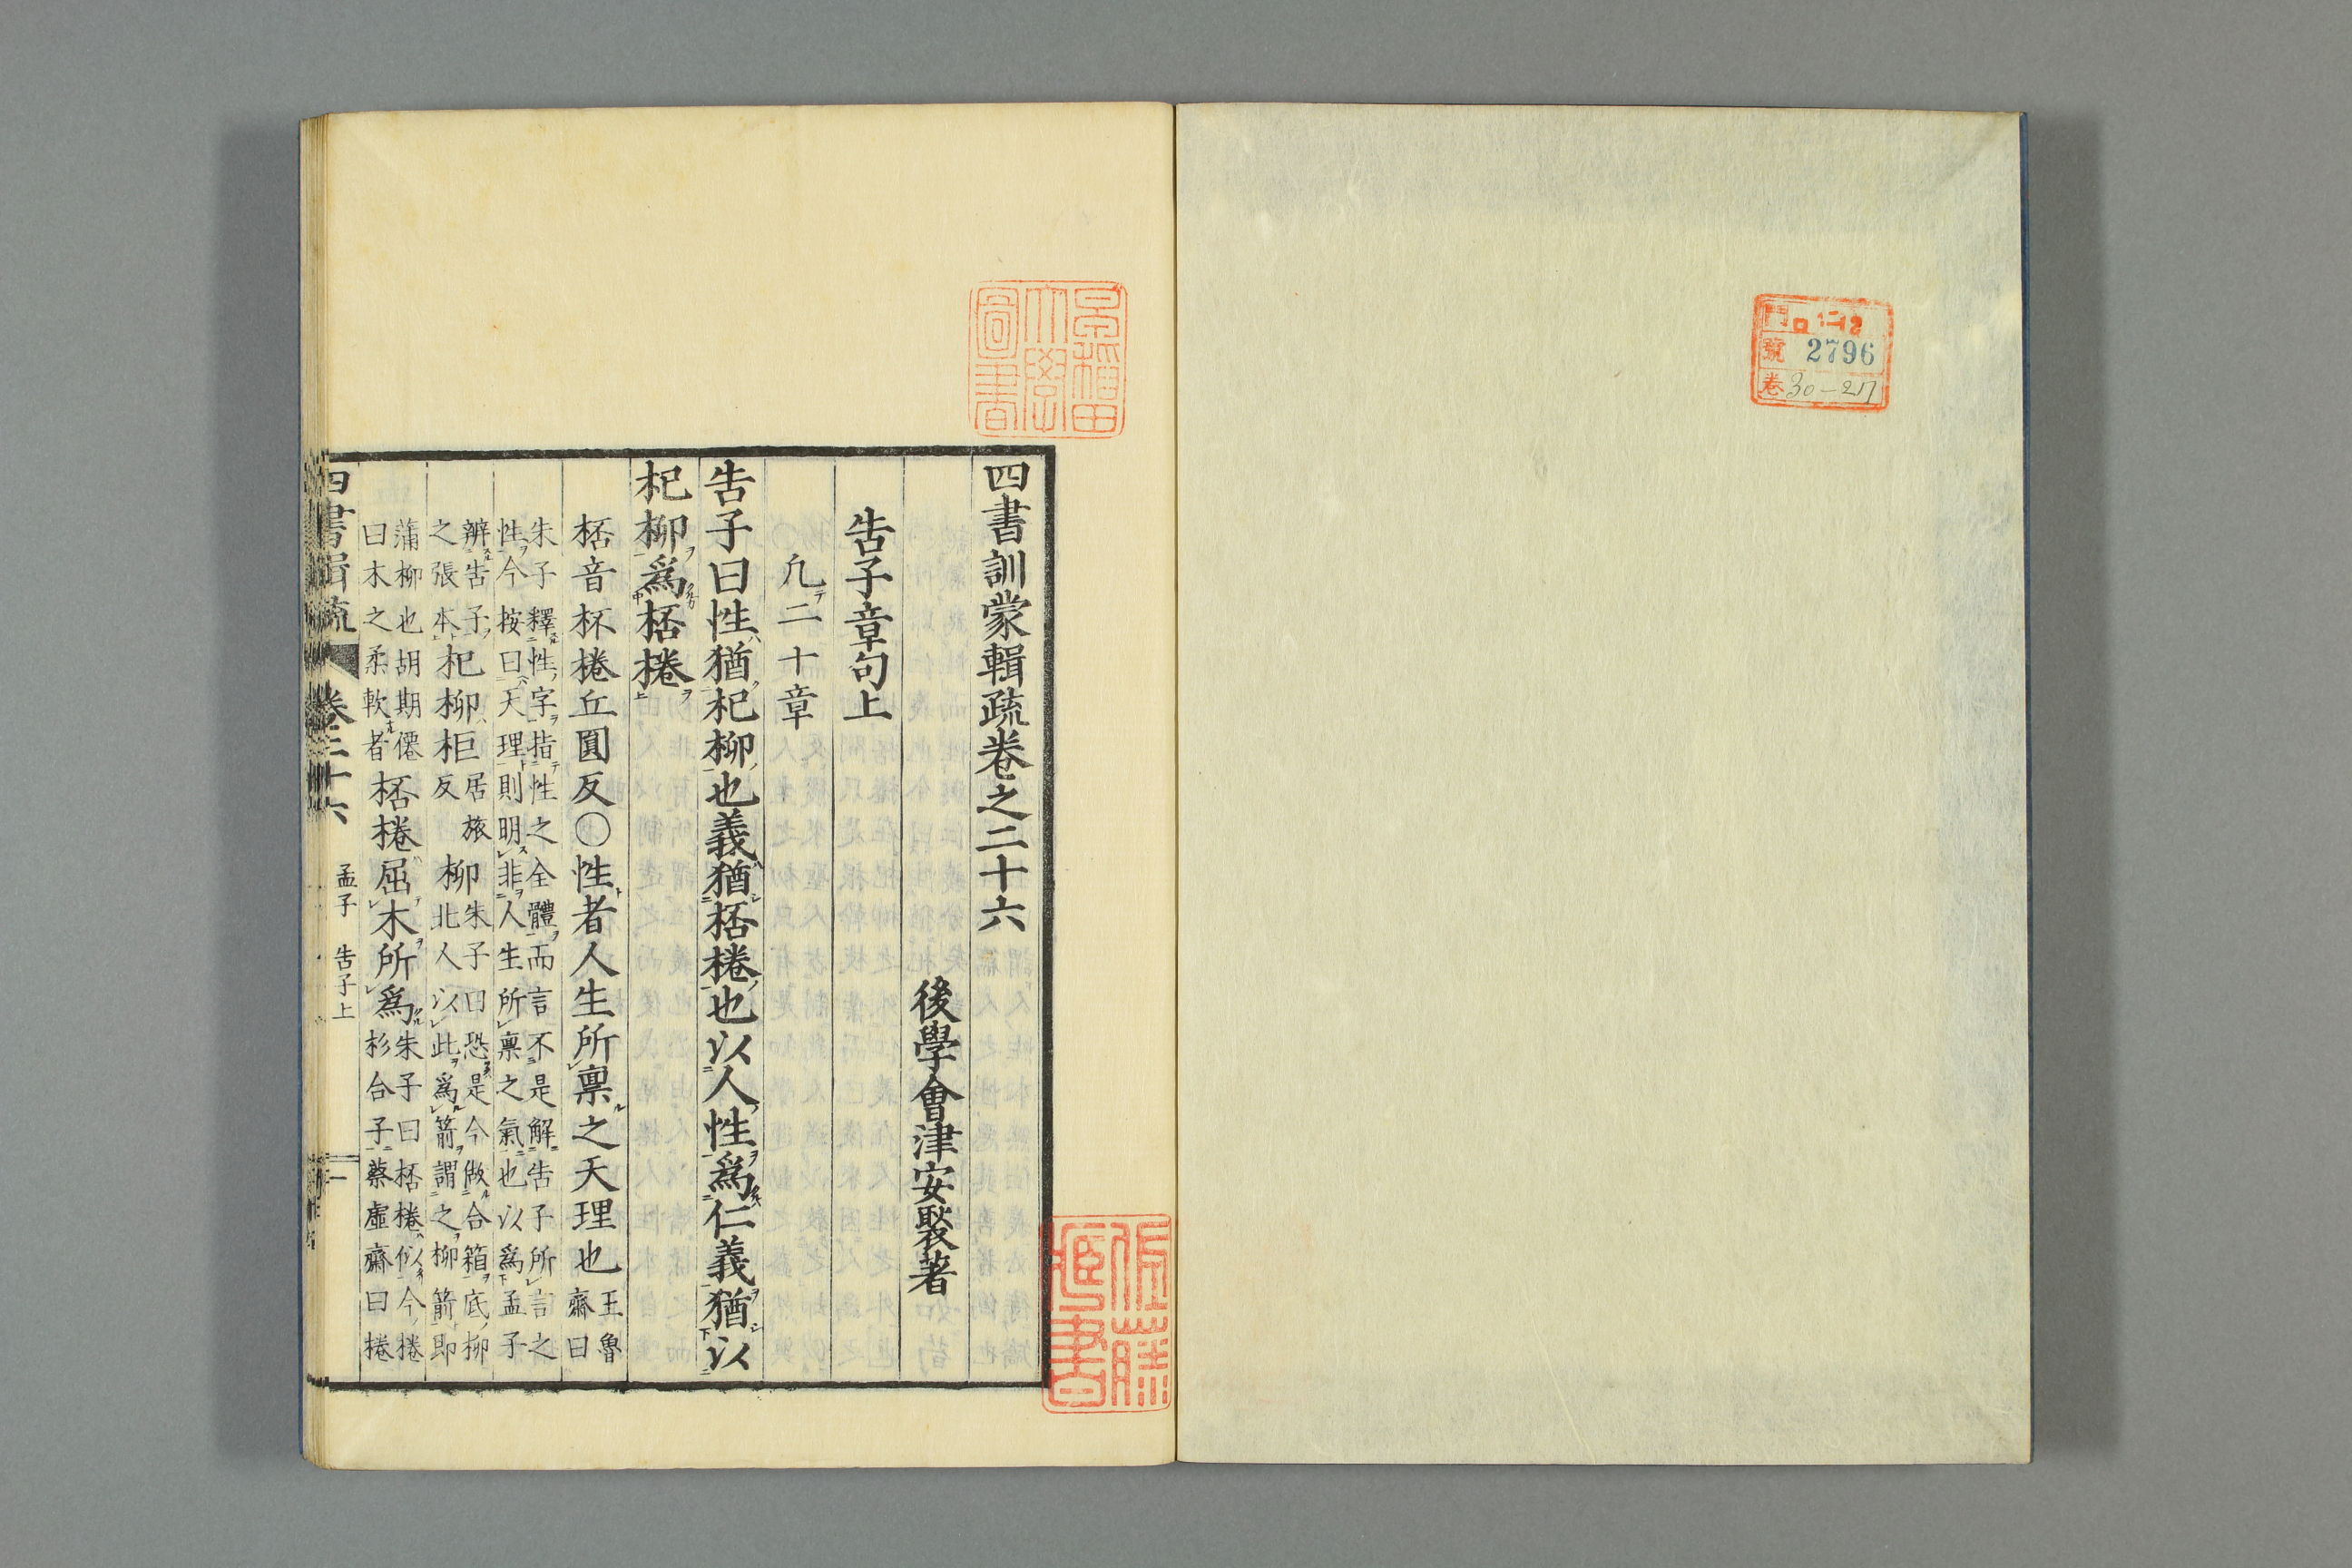 門 ロ12
號 2796
卷 30-27
早稲田
大學
圖書
四書訓蒙輯疏卷之二十六
後學會津安褧著
告子章句上
凡二十章
告子曰性猶杞柳也義猶桮棬也以人性爲仁義猶以
杞柳爲桮棬
桮音杯棬丘圓反〇性者人生所禀之天理也王魯
齋曰
朱子釋性字指性之全體而言不是解告子所言之
性今按曰天理則明非人生所禀之氣也以爲孟子
辨告子
之張本杞柳柜居旅
反柳朱子曰恐是今做合箱底柳
北人以此爲箭謂之柳箭即
蒲柳也胡期僊
曰木之柔軟者桮棬屈木所爲朱子曰桮棬似今棬
杉合子蔡虛齋曰棬
四書輯疏 卷二十六 孟子 告子上 一
佐藤
藏書